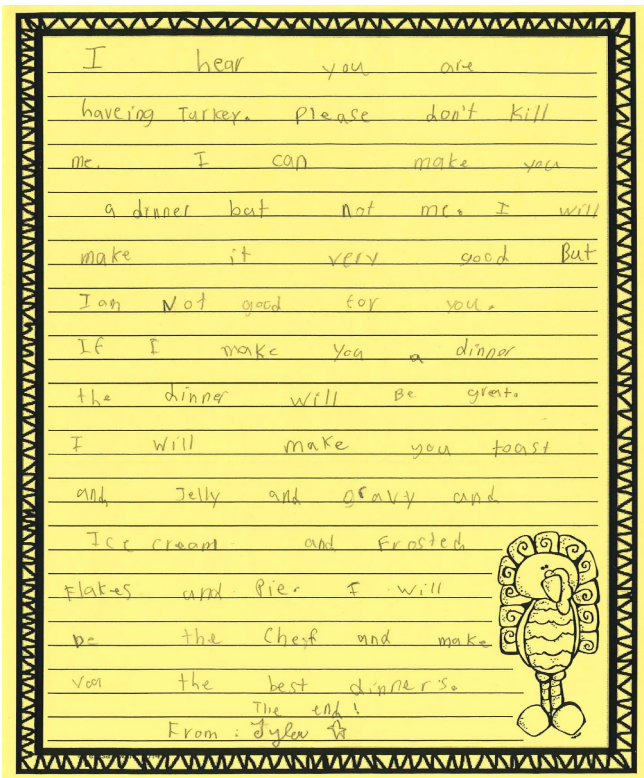 I hear you are
haveing Turkey. Please don't kill
me. I can make you
a dinner but not me. I will
make it very good But
I am Not good for you.
If I make you a dinner
the dinner will Be great.
I will make you toast
and Jelly and gravy and
Ice cream and Frosted
Flakes and Pie. I will
be the Chef and make
you the best dinner's.
The end!
From: Tyler